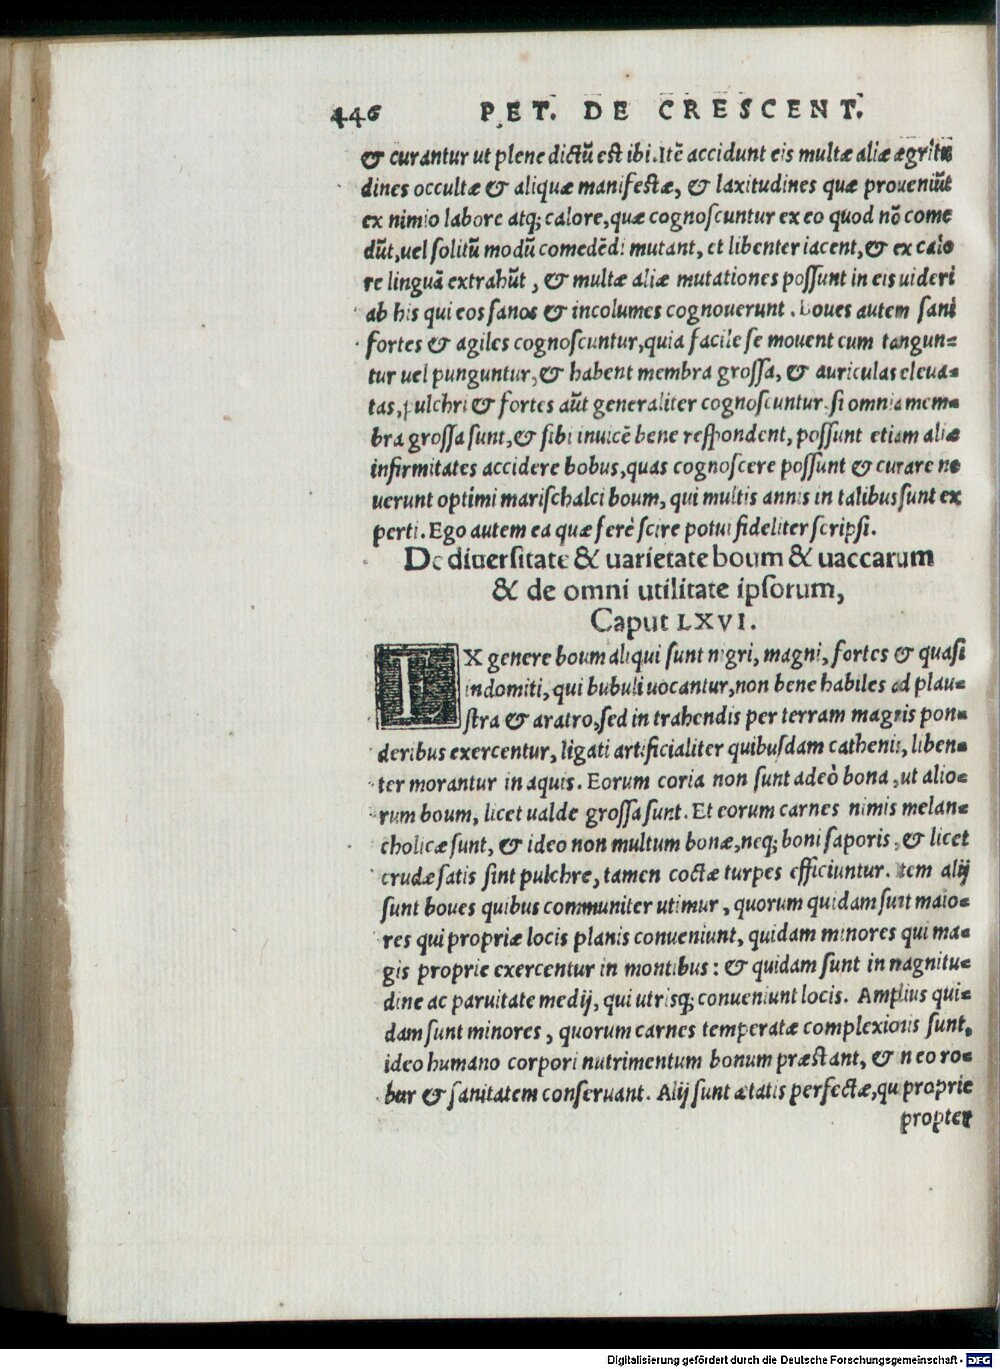 446 PET. DE CRESCENT.
& curantur ut plene dictũ est ibi. Itẽ accidunt eis multæ aliæ ægritu
dines occultæ & aliquæ manifestæ, & laxitudines quæ proueniũt
ex nimio labore atq; calore, quæ cognoscuntur ex eo quod nõ come
dũt, uel solitũ modũ comedẽdi mutant, et libenter iacent, & ex calo
re linguã extrahũt, & multæ aliæ mutationes possunt in eis uideri
ab his qui eos sanos & incolumes cognouerunt. Boues autem sani
fortes & agiles cognoscuntur, quia facile se mouent cum tangun=
tur uel punguntur, & habent membra grossa, & auriculas eleua=
tas, pulchri & fortes aũt generaliter cognoscuntur si omnia mem=
bra grossa sunt, & sibi inuicẽ bene respondent, possunt etiam aliæ
infirmitates accidere bobus, quas cognoscere possunt & curare no
uerunt optimi marischalci boum, qui multis annis in talibus sunt ex
perti. Ego autem ea quæ ferè scire potui fideliter scripsi.
De diuersitate & uarietate boum & uaccarum
& de omni utilitate ipsorum,
Caput LXVI.
EX genere boum aliqui sunt nigri, magni, fortes & quasi
indomiti, qui bubuli uocantur, non bene habiles ad plau=
stra & aratro, sed in trahendis per terram magnis pon=
deribus exercentur, ligati artificialiter quibusdam cathenis, liben=
ter morantur in aquis. Eorum coria non sunt adeò bona, ut alio=
rum boum, licet ualde grossa sunt. Et eorum carnes nimis melan=
cholicæ sunt, & ideo non multum bonæ, neq; boni saporis, & licet
crudæ satis sint pulchre, tamen coctæ turpes efficiuntur. Item alij
sunt boues quibus communiter utimur, quorum quidam sunt maio=
res qui propriæ locis planis conueniunt, quidam minores qui ma=
gis proprie exercentur in montibus: & quidam sunt in magnitu=
dine ac paruitate medij, qui utrisq; conueniunt locis. Amplius qui=
dam sunt minores, quorum carnes temperatæ complexionis sunt,
ideo humano corpori nutrimentum bonum præstant, & in eo ro=
bur & sanitatem conseruant. Alij sunt ætatis perfectæ, qui proprie
propter
Digitalisierung gefördert durch die Deutsche Forschungsgemeinschaft - DFG